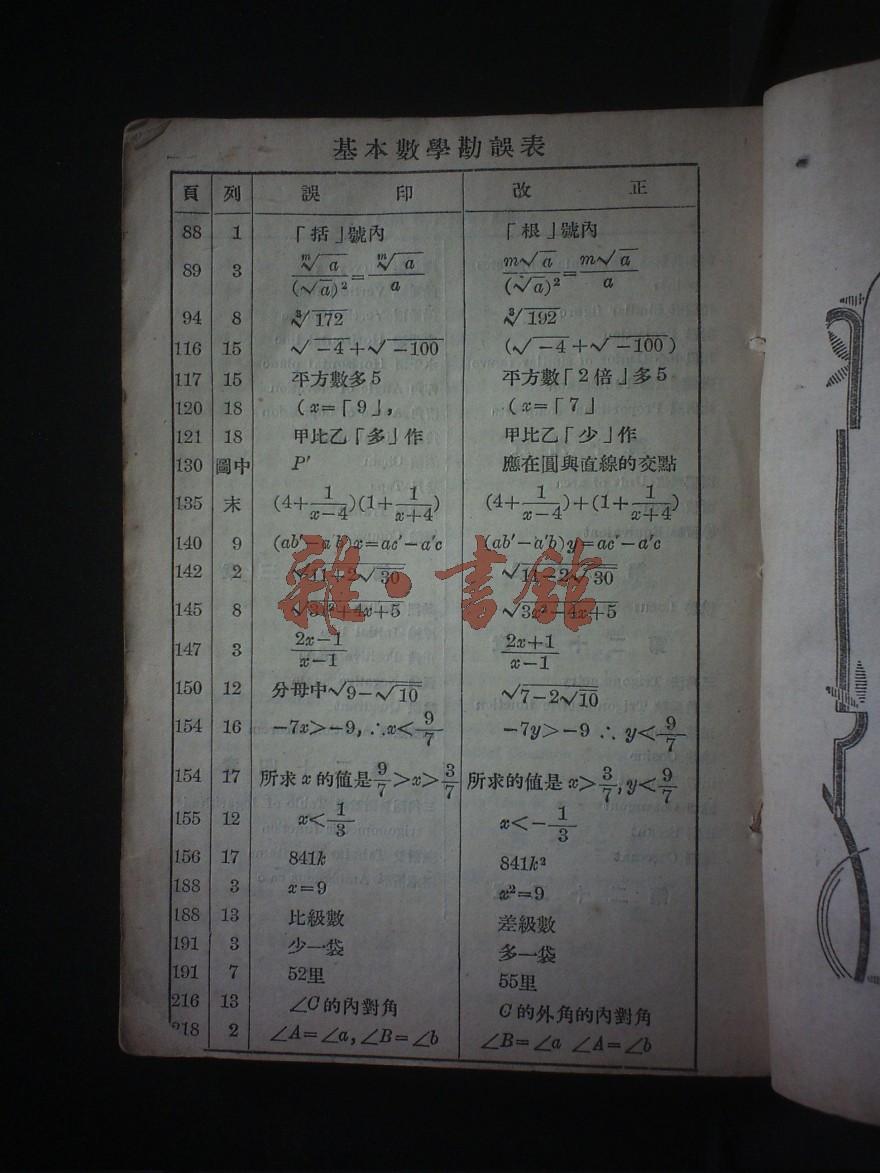 基本數學勘誤表
頁 列 誤 印 改 正
88 1 「括」號內 「根」號內
89 3 \frac{\sqrt[m]{a}}{(\sqrt{a})^2}=\frac{\sqrt[m]{a}}{a} \frac{m\sqrt{a}}{(\sqrt{a})^2}=\frac{m\sqrt{a}}{a}
94 8 \sqrt[3]{172} \sqrt[3]{192}
116 15 \sqrt{-4}+\sqrt{-100} (\sqrt{-4}+\sqrt{-100})
117 15 平方數多5 平方數「2倍」多5
120 18 (x=「9」, (x=「7」
121 18 甲比乙「多」作 甲比乙「少」作
130 圖中 P′ 應在圓與直線的交點
135 末 (4+\frac{1}{x-4})(1+\frac{1}{x+4}) (4+\frac{1}{x-4})+(1+\frac{1}{x+4})
140 9 (ab′-a′b)x=ac′-a′c (ab′-a′b)y=ac′-a′c
142 2 \sqrt{11+2\sqrt{30}} \sqrt{11-2\sqrt{30}}
145 8 \sqrt{3x^2+4x+5} \sqrt{3x^2-4x+5}
147 3 \frac{2x-1}{x-1} \frac{2x+1}{x-1}
150 12 分母中\sqrt{9-\sqrt{10}} \sqrt{7-2\sqrt{10}}
154 16 -7x>-9, ∴x<\frac{9}{7} -7y>-9 ∴ y<\frac{9}{7}
154 17 所求x的値是\frac{9}{7}>x>\frac{3}{7} 所求的値是x>\frac{3}{7}, y<\frac{9}{7}
155 12 x<\frac{1}{3} x<-\frac{1}{3}
156 17 841k 841k²
188 3 x=9 x²=9
188 13 比級數 差級數
191 3 少一袋 多一袋
191 7 52里 55里
216 13 ∠C的內對角 C的外角的內對角
218 2 ∠A=∠a, ∠B=∠b ∠B=∠a ∠A=∠b
雜·書館